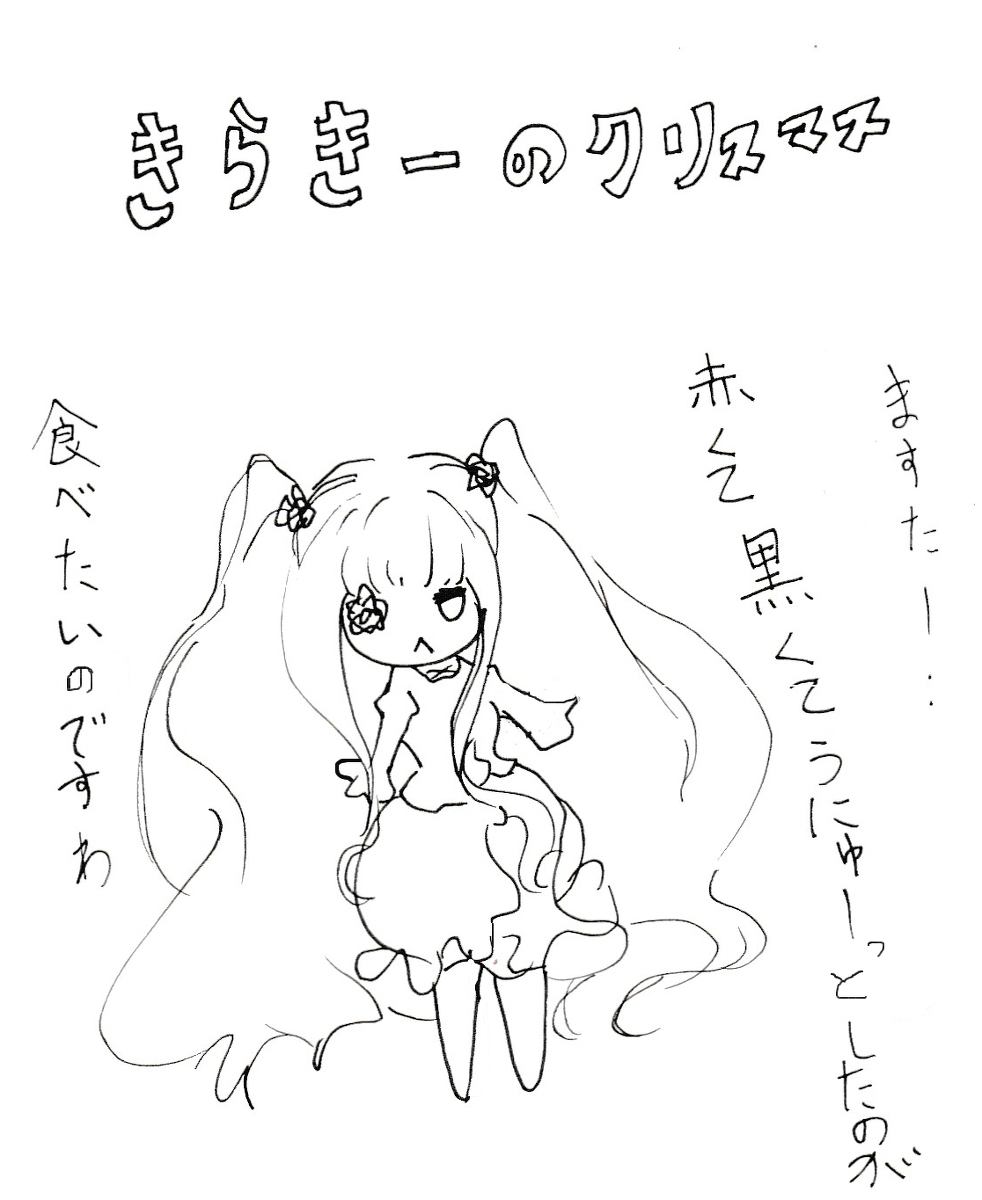 きらきーのクリスマス
ますたー：
赤くて黒くてうにゅーっとしたのが
食べたいのですわ